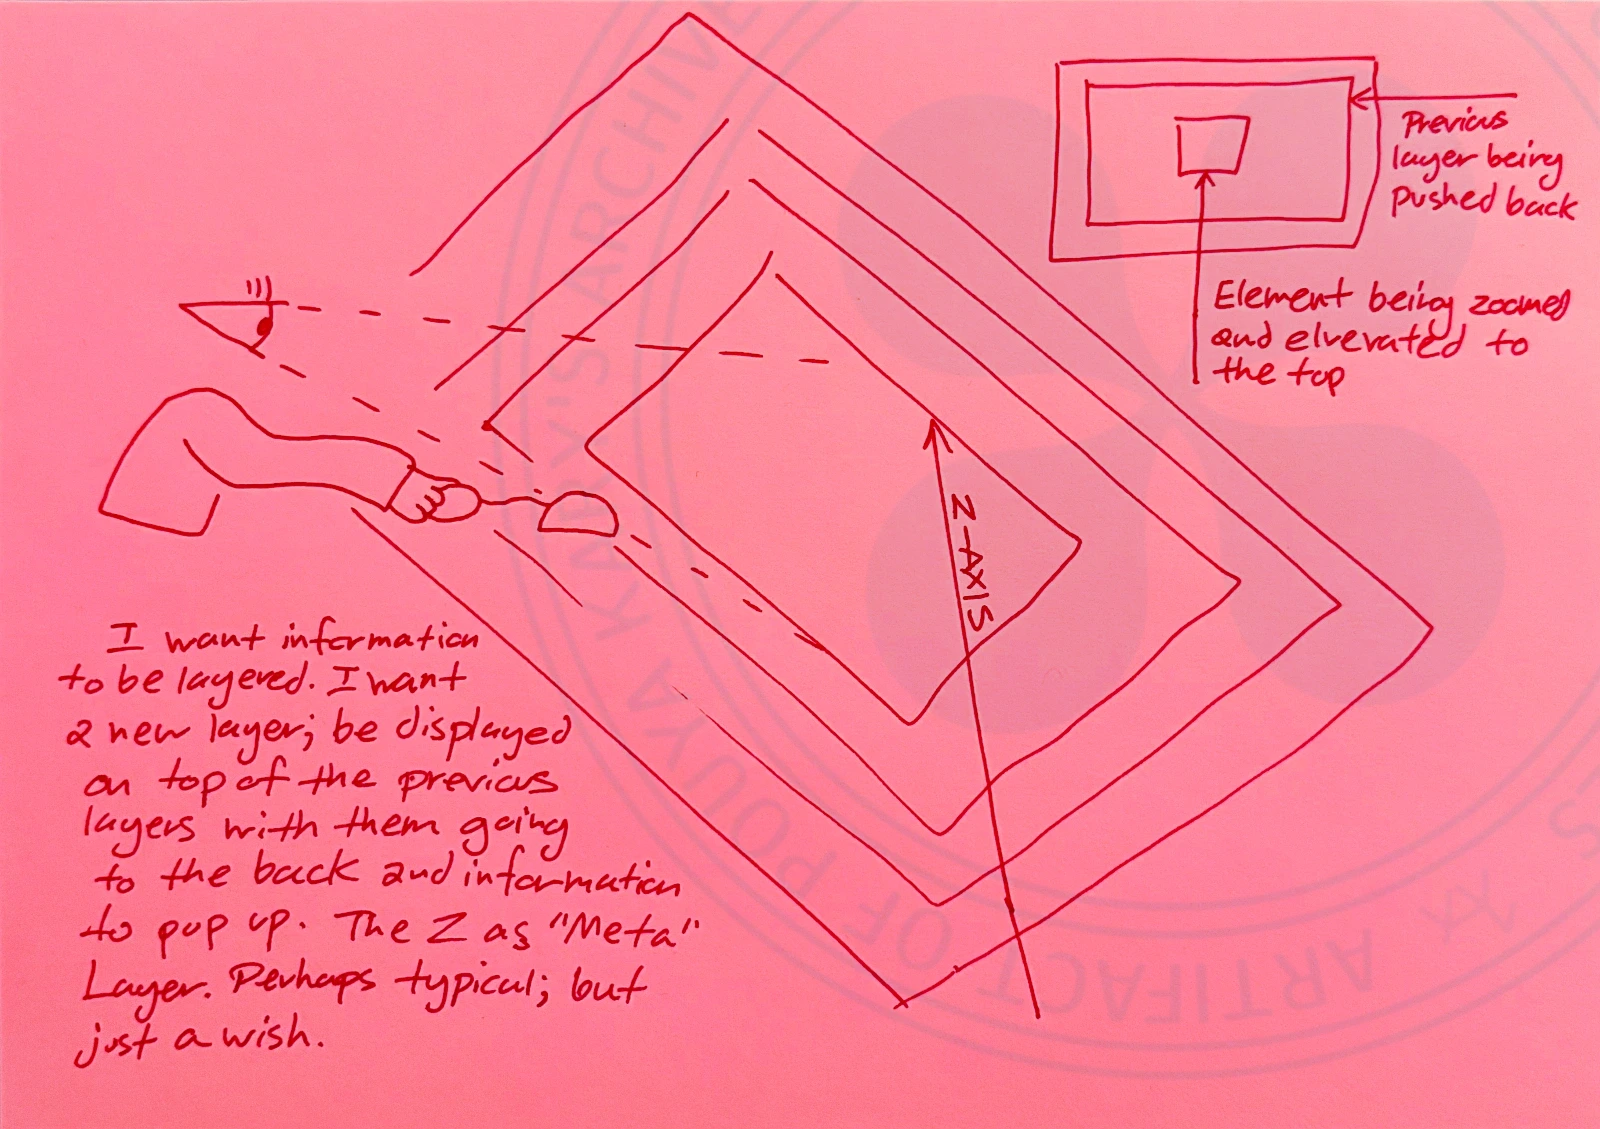 Previous
layer being
pushed back
Element being zoomed
and elverated to
the top
Z-AXIS
I want information
to be layered. I want
a new layer; be displayed
on top of the previous
layers with them going
to the back and information
to pop up. The Z as "Meta"
Layer. Perhaps typical; but
just a wish.
ARTIFACT OF POUYA KARVI'S ARCHIVE